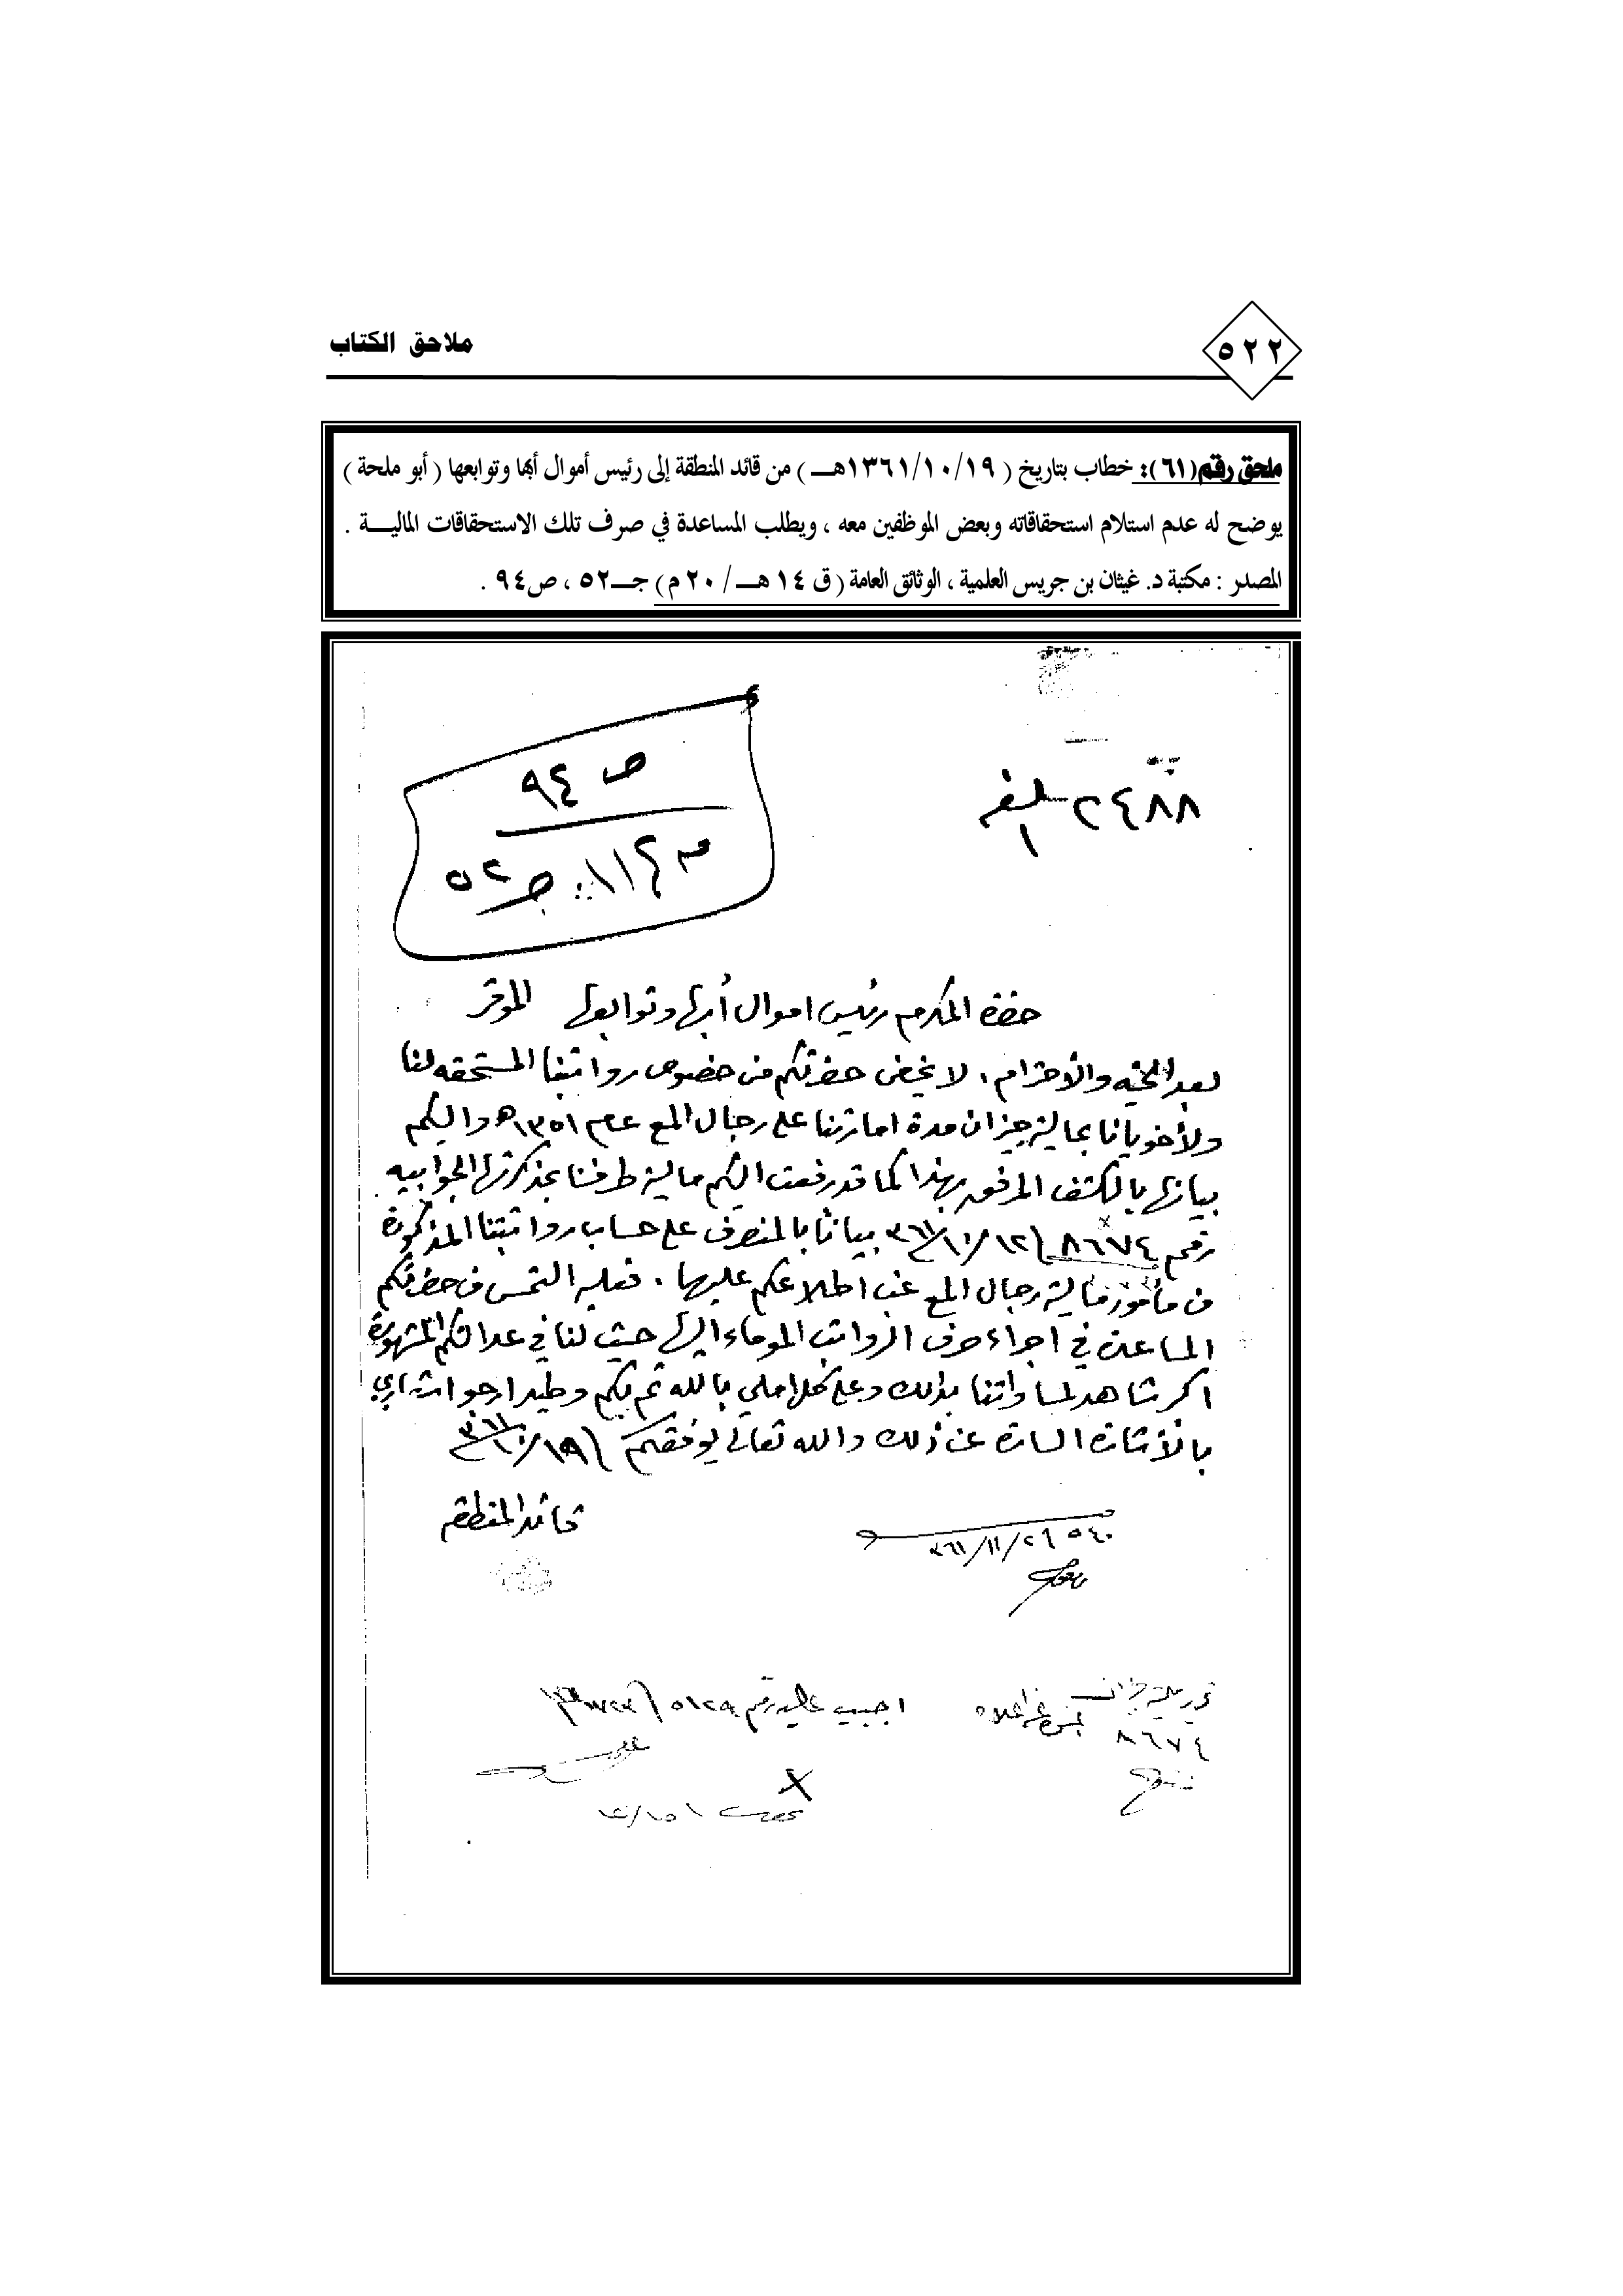 ملاحق الكتاب
٥٢٢
ملحق رقم (٦١): خطاب بتاريخ ( ١٣٦١/١٠/١٩هــ ) من قائد المنطقة إلى رئيس أموال أبها وتوابعها ( أبو ملحة )
يوضح له عدم استلام استحقاقاته وبعض الموظفين معه ، ويطلب المساعدة في صرف تلك الاستحقاقات الماليــة .
المصدر : مكتبة د. غيثان بن جريس العلمية ، الوثائق العامة ( ق ١٤ هــ / ٢٠ م ) جــ٥٢ ، ص٩٤ .
ص ٩٤
ج ٥٢
٢٤٨٨
١
حضرة المكرم رئيس اموال أبها وتوابعها الموقر
بعد التحيه والأحترام . لا يخفى حضرتكم من خصوص رواتبنا المستحقه لنا
ولأخويانا بمالية جيزان مدة امارتنا على رجال المع عام ١٣٥١ه واليكم
بيانها بالكشف المرفق بهذا كما قد رفعت اليكم مالية طرفنا بمذكرتها الجوابيه
رقم ٨٦٧٤ ١٢/١٠/٣٦١ بياناً بالمنصرف على حساب رواتبنا المذكورة
من مأمور مالية رجال المع غب اطلاعكم عليها . فعليه التمس من حضرتكم
المساعدة في اجراء صرف الرواتب الموماء اليها حيث لنا في عدالتكم المشهورة
اكبر شاهد لمساواتنا بذلك وعلى كل املي بالله ثم بكم وطيد ارجو اشعاري
بالأشارة السارة عن ذلك والله تعالى يوفقكم ١٩/١٠/٣٦١
قائد المنطقه
٥٤٠ ٢٦/١١/٣٦١
٨٦٧٤
اجيب عليه رقم ٥١٢٩